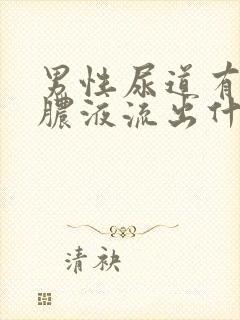 男性尿道有
脓液流出什
清袂